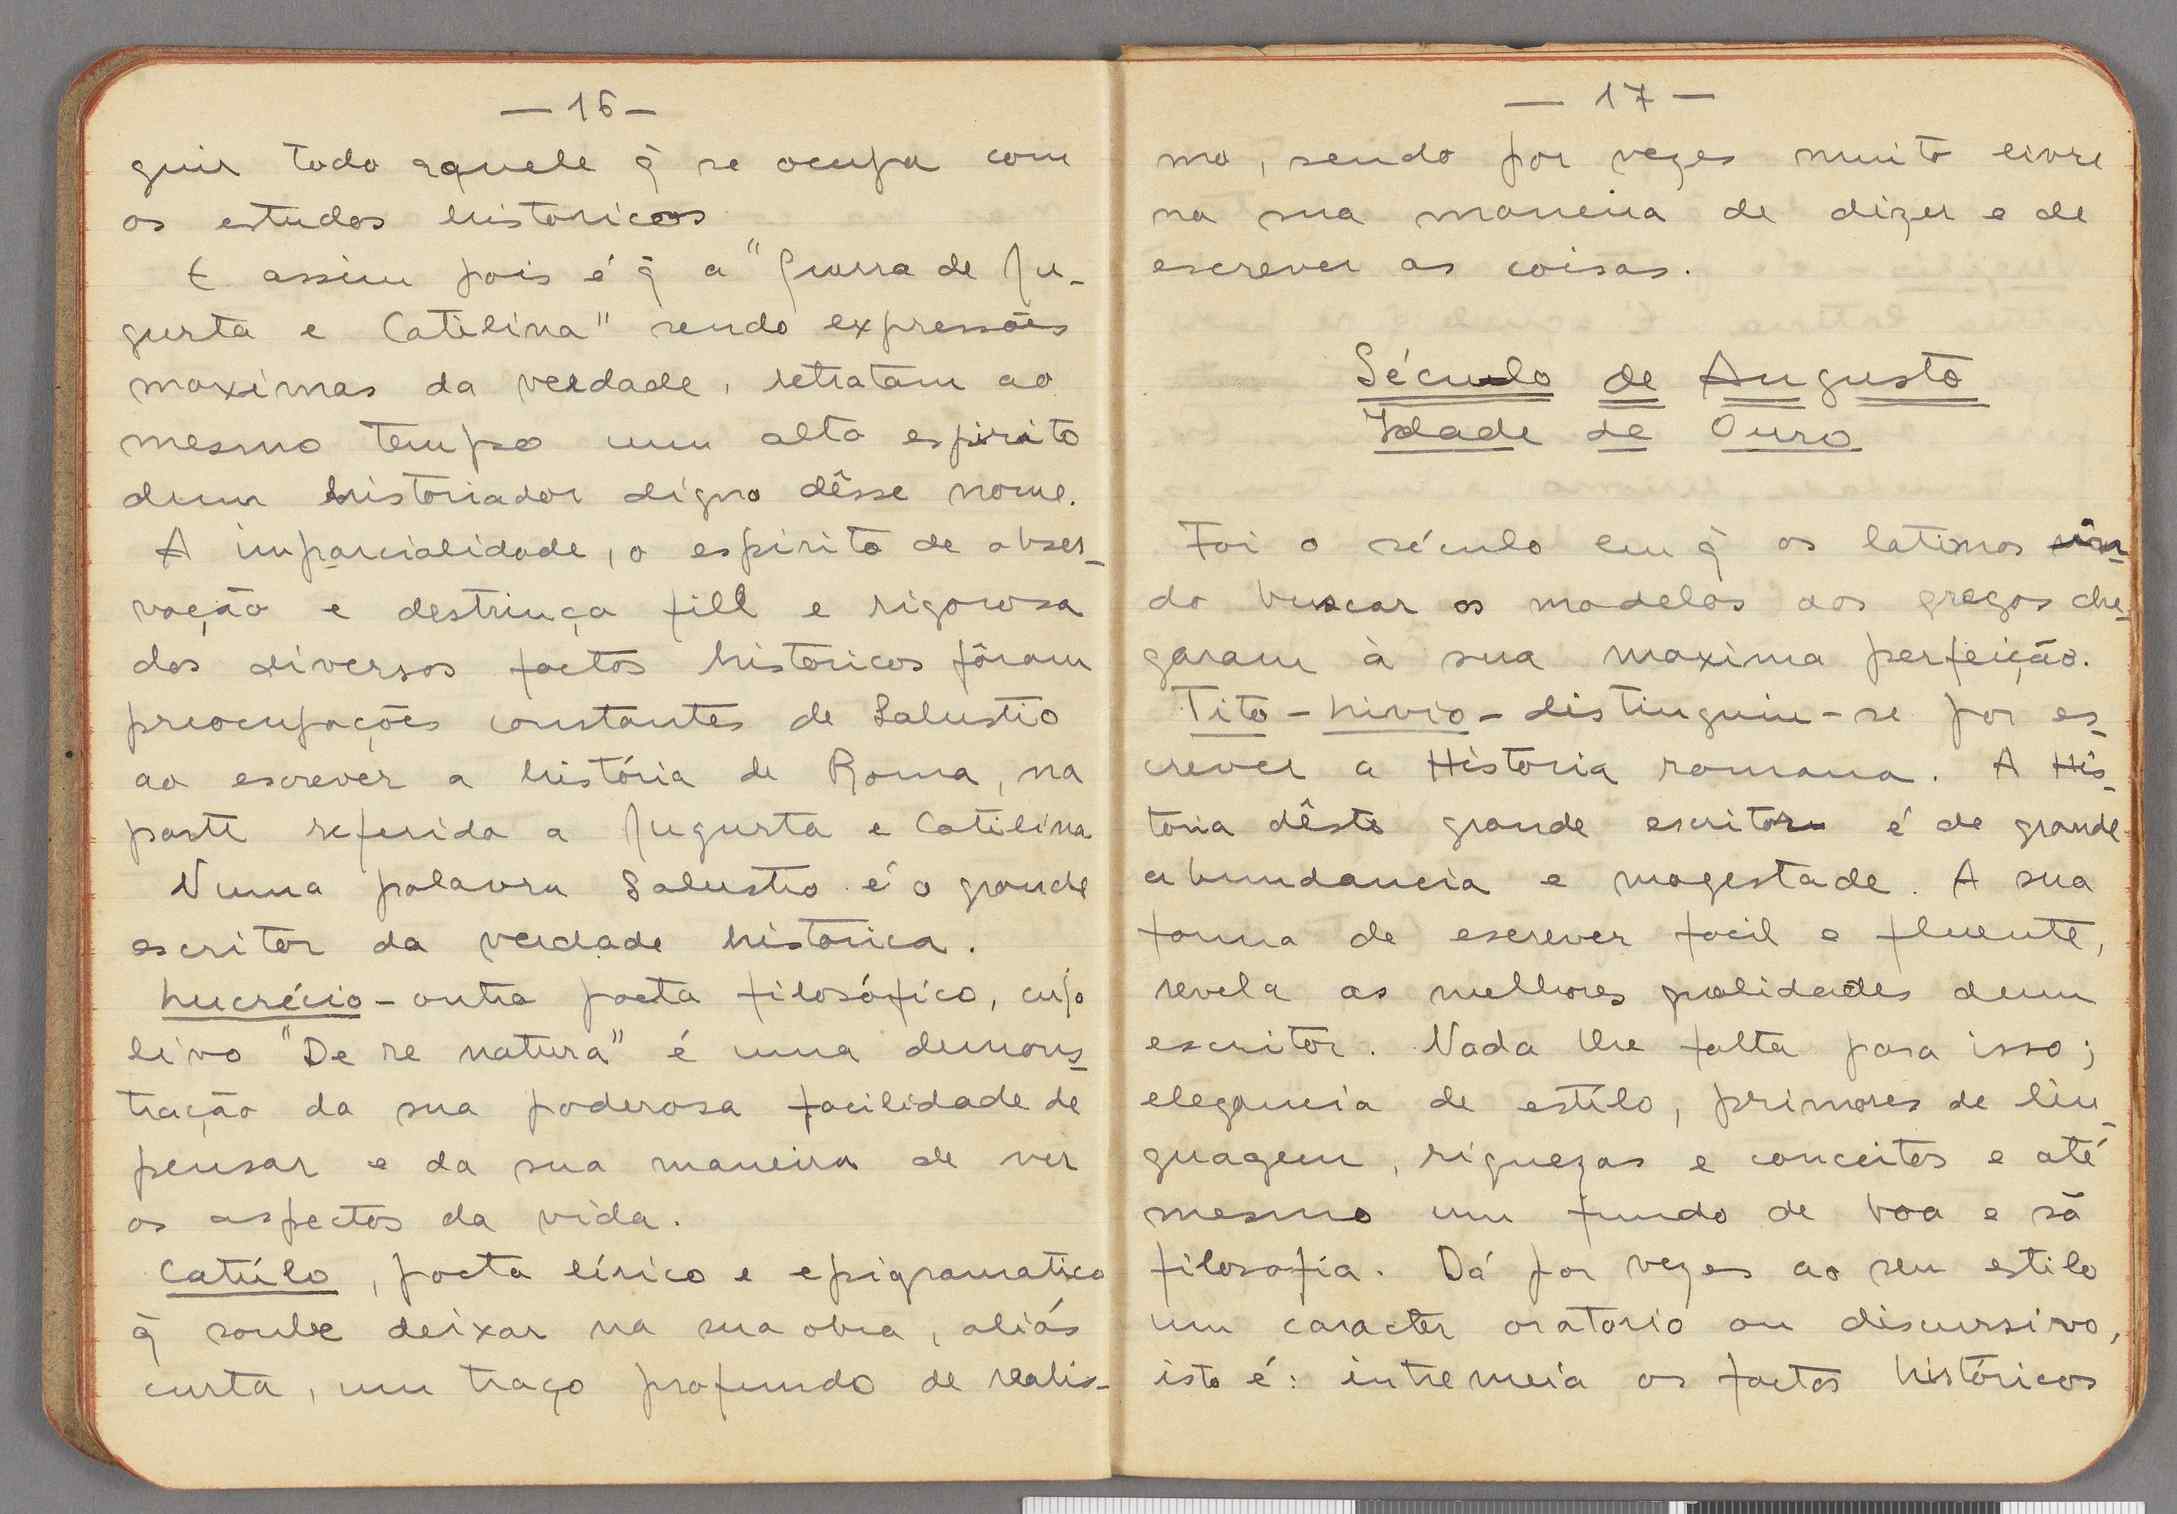 — 16 —
guir todo aquele q̃ se ocupa com
os estudos historicos
E assim pois é q̃ a "Guerra de Ju-
gurta e Catilina" sendo expressões
maximas da verdade, retratam ao
mesmo tempo um alto espirito
dum historiador digno dêsse nome.
A imparcialidade, o espirito de obser-
vação e destrinça fiel e rigorosa
dos diversos factos historicos fôram
preocupações constantes de Salustio
ao escrever a história de Roma, na
parte referida a Jugurta e Catilina
Numa palavra Salustio é o grande
escritor da verdade historica.
Lucrécio - outro poeta filosófico, cujo
livo "De re natura" é uma demons-
tração da sua poderosa facilidade de
pensar e da sua maneira de ver
os aspectos da vida.
Catúlo, poeta lírico e epigramatico
q̃ soube deixar na sua obra, aliás
curta, um traço profundo de realis-
— 17 —
mo, sendo por vezes muito livre
na sua maneira de dizer e de
escrever as coisas.
Século de Augusto
Idade de Ouro
Foi o século em q̃ os latinos
do buscar os modelos aos gregos che-
garam à sua maxima perfeição.
Tito-Livio - distinguiu-se por es-
crever a Historia romana. A His-
toria dêste grande escritor é de grande
abundancia e magestade. A sua
forma de escrever facil e fluente,
revela as melhores qualidades dum
escritor. Nada lhe falta para isso;
elegancia de estílo, primores de lin-
guagem, riquezas e conceitos e até
mesmo um fundo de boa e sã
filosofia. Dá por vezes ao seu estilo
um caracter oratorio ou discursivo,
isto é: intremeia os factos históricos